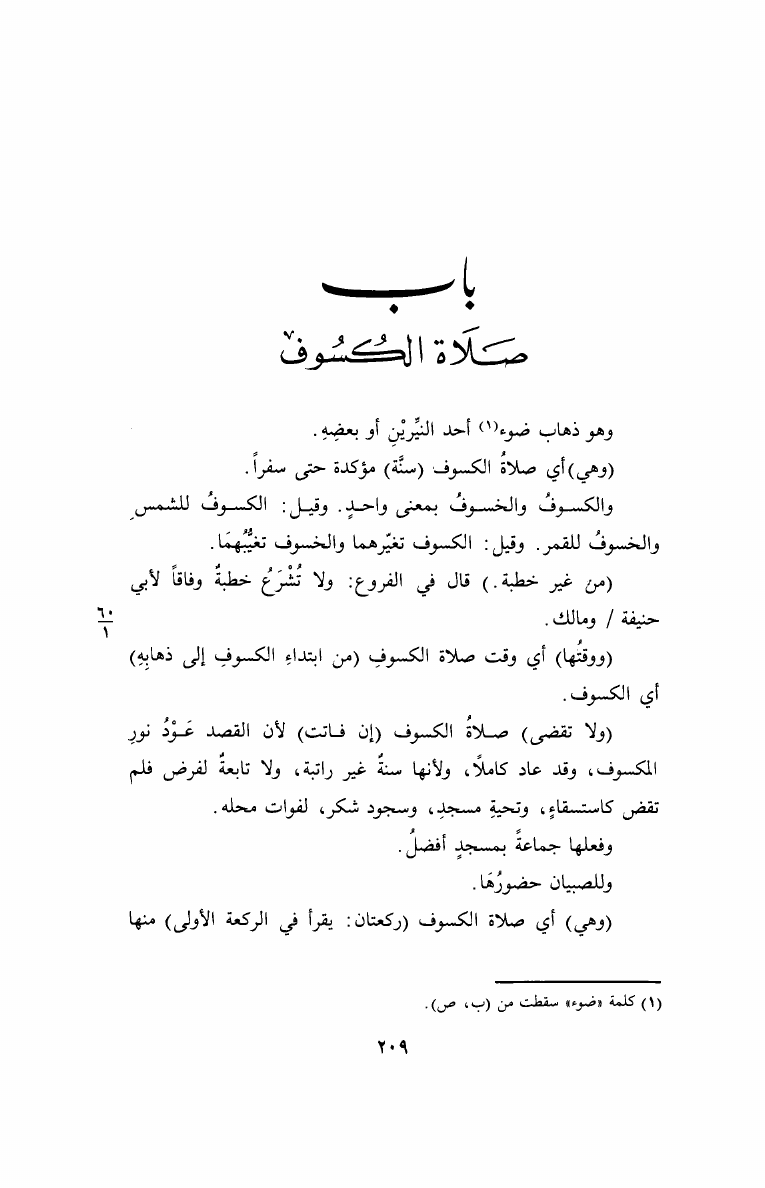 باب
صَلَاة الكُسُوف
وهو ذهاب ضوء(١) أحد النيِّريْنِ أو بعضِهِ.
(وهي) أي صلاةُ الكسوف (سنَّة) مؤكدة حتى سفراً.
والكسوفُ والخسوفُ بمعنى واحدٍ. وقيل: الكسوفُ للشمسِ
والخسوفُ للقمر. وقيل: الكسوف تغيّرهما والخسوف تغيُّبُهمَا.
(من غير خطبة.) قال في الفروع: ولا تُشْرَعُ خطبةٌ وفاقاً لأبي
حنيفة / ومالك.
٦٠
١
(ووقتُها) أي وقت صلاة الكسوفِ (من ابتداءِ الكسوفِ إلى ذهابِهِ)
أي الكسوف.
(ولا تقضى) صلاةُ الكسوف (إن فاتت) لأن القصد عَوْدُ نورِ
المكسوف، وقد عاد كاملًا، ولأنها سنةٌ غير راتبة، ولا تابعةٌ لفرض فلم
تقض كاستسقاءٍ، وتحيةِ مسجدِ، وسجود شكر، لفوات محله.
وفعلها جماعةً بمسجدٍ أفضلُ.
وللصبيان حضورُهَا.
(وهي) أي صلاة الكسوف (ركعتان: يقرأ في الركعة الأولى) منها
(١) كلمة «ضوء» سقطت من (ب، ص).
٢٠٩